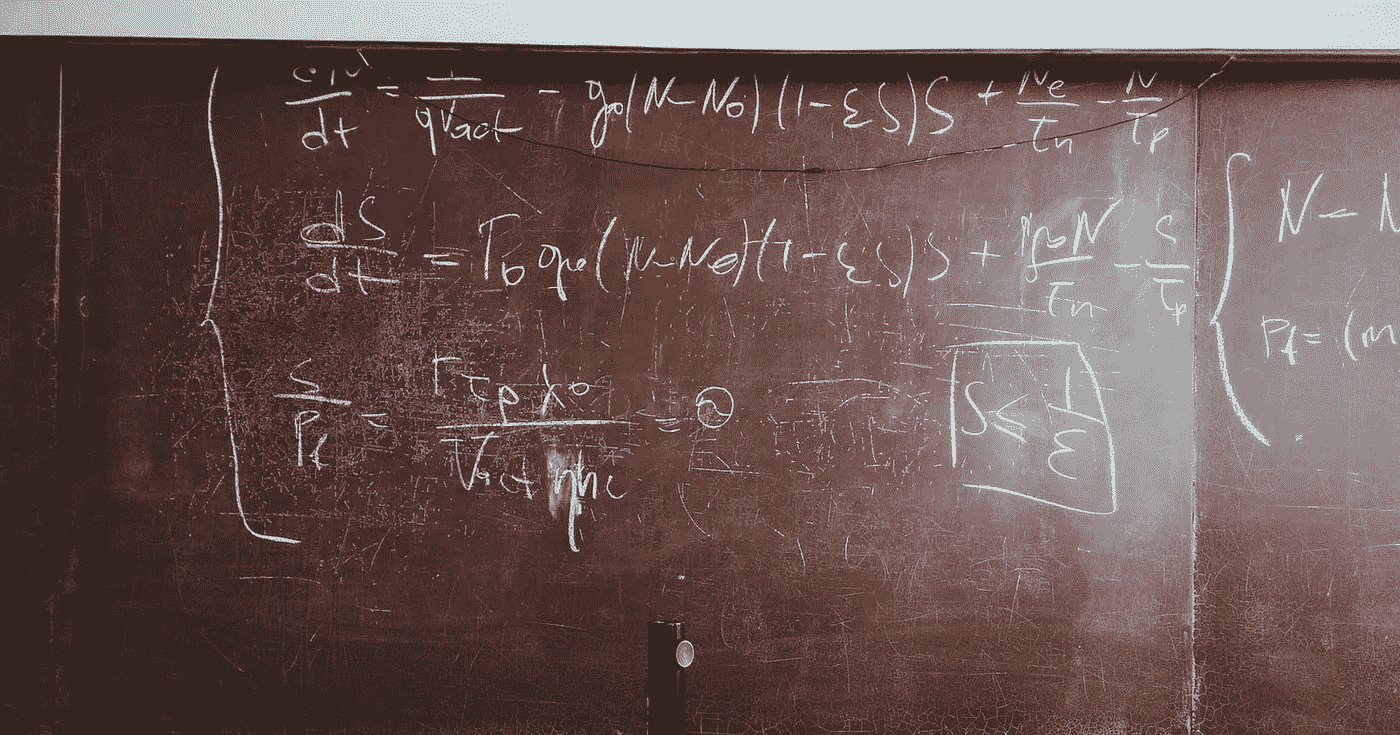 dN/dt = I/(qVact) - g₀(N-N₀)(1-εS)S + Ne/τn - N/τp
dS/dt = Γ₀g₀(N-N₀)(1-εS)S + N/τn - S/τp
S/Pf = Γτpλ₀/(Vactηhc) = 
S ≤ 1/ε
N - N
Pf = (m